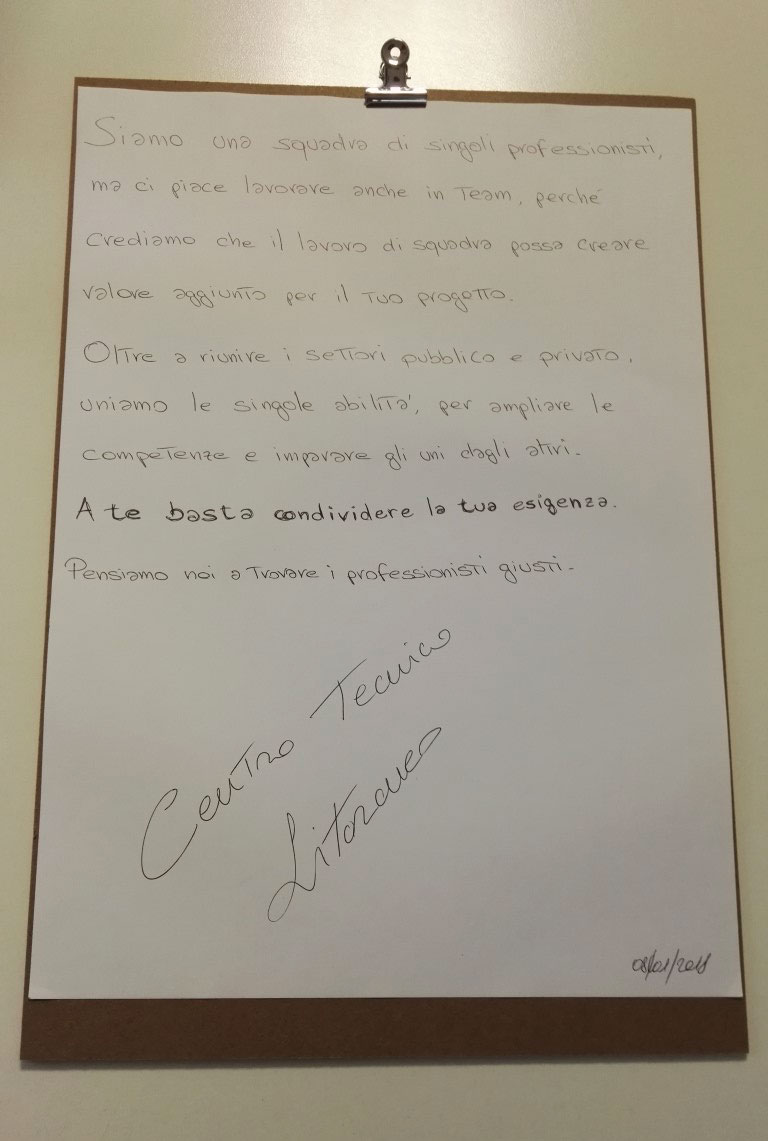 Siamo una squadra di singoli professionisti,
ma ci piace lavorare anche in Team, perché
crediamo che il lavoro di squadra possa creare
valore aggiunto per il Tuo progetto.
Oltre a riunire i settori pubblico e privato,
uniamo le singole abilita', per ampliare le
competenze e imparare gli uni dagli altri.
A te basta condividere la tua esigenza.
Pensiamo noi a trovare i professionisti giusti.
Centro Tecnico
Litoraneo
08/01/2018